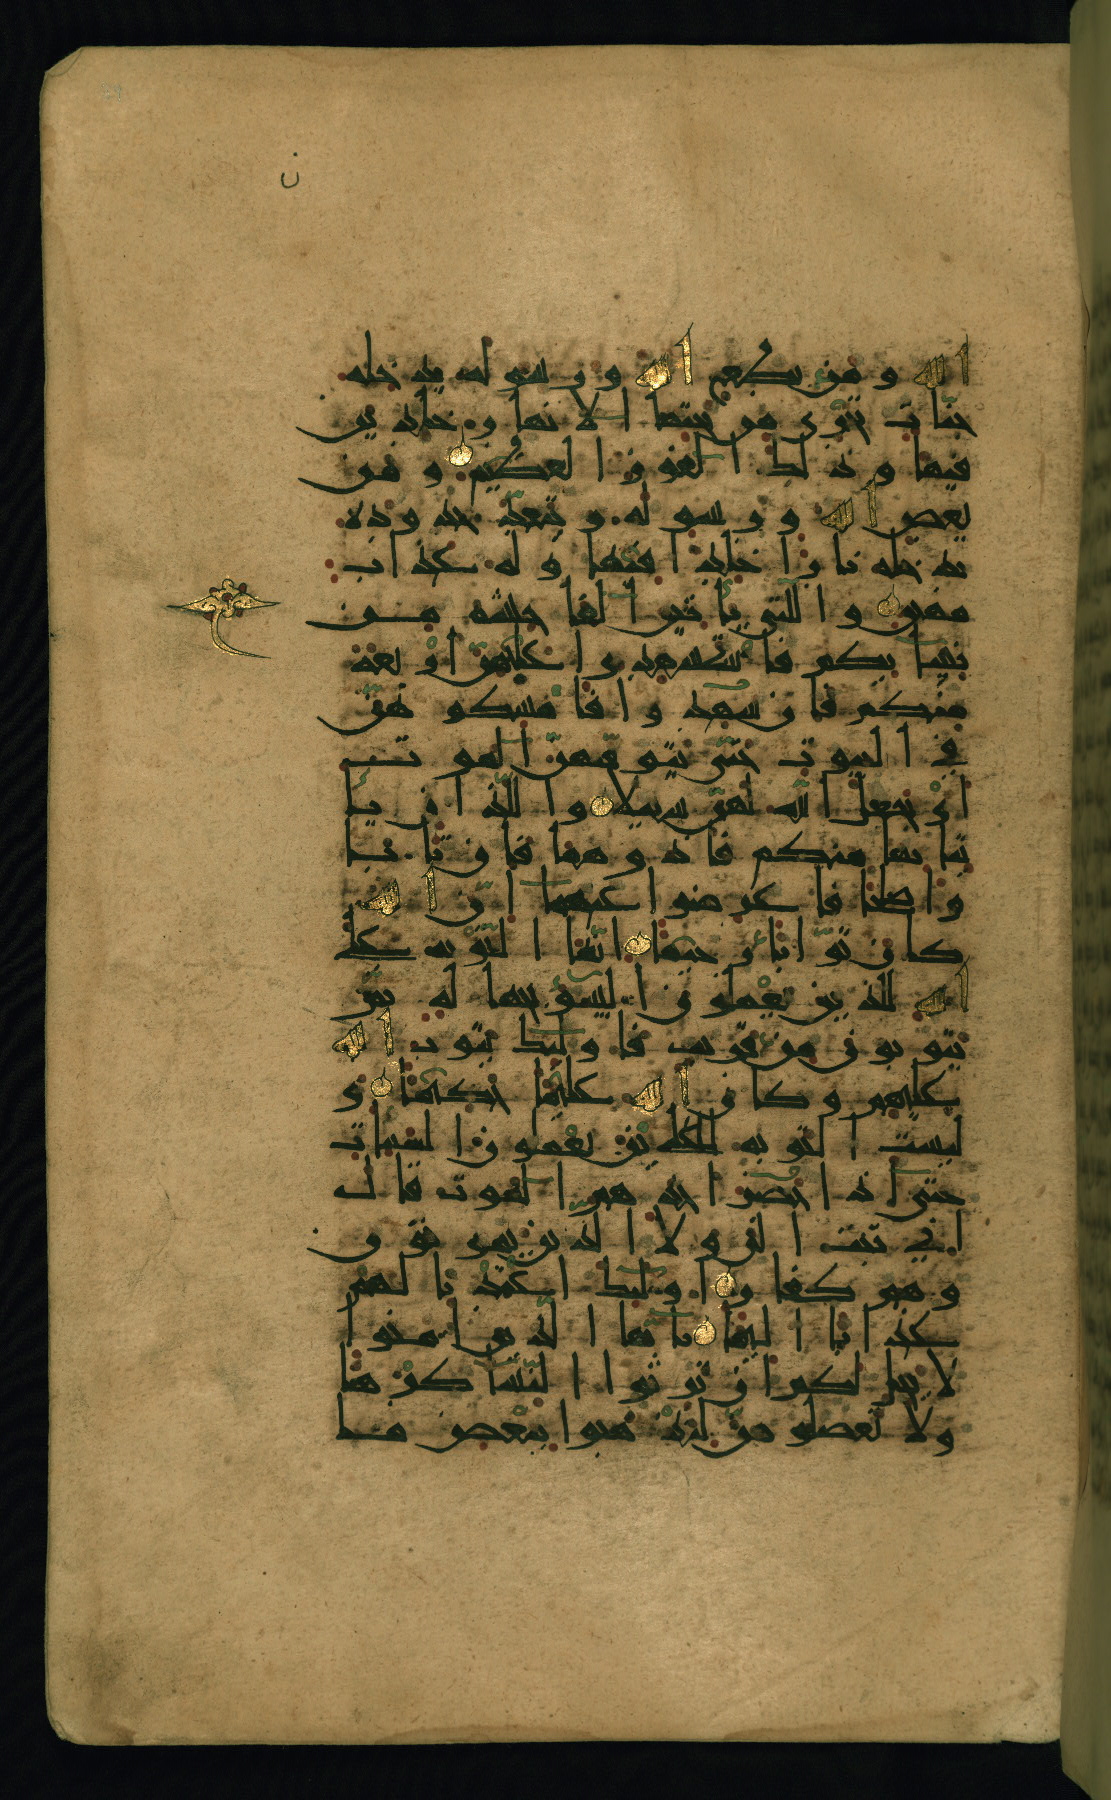 ن
الله ومن يطع الله ورسوله يدخله
جنات تجري من تحتها الانهار خالدين
فيها وذلك الفوز العظيم ومن
يعص الله ورسوله ويتعد حدوده
يدخله نارا خالدا فيها وله عذاب
مهين والتي ياتين الفاحشة من
نسايكم فاستشهدوا عليهن اربعة
منكم فان شهدوا فامسكوهن
في البيوت حتى يتوفهن الموت
او يجعل الله لهن سبيلا والذان يا
تيانها منكم فاذوهما فان تابا
واصلحا فاعرضوا عنهما ان الله
كان توابا رحيما انما التوبة على
الله للذين يعملون السو بجهالة ثم
يتوبون من قريب فاوليك يتوب الله
عليهم وكان الله عليما حكيما و
ليست التوبة للذين يعملون السيات
حتى اذا حضر احدهم الموت قال
اني تبت الن ولا الذين يموتون
وهم كفار اوليك اعتدنا لهم
عذابا اليما يايها الذين امنوا
لا يحل لكم ان ترثوا النسا كرها
ولا تعضلوهن لتذهبوا ببعض ما